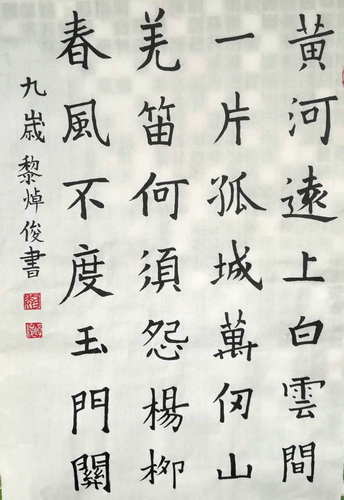 黃河遠上白雲間
一片孤城萬仞山
羌笛何須怨楊柳
春風不度玉門關
九歲黎焯俊書